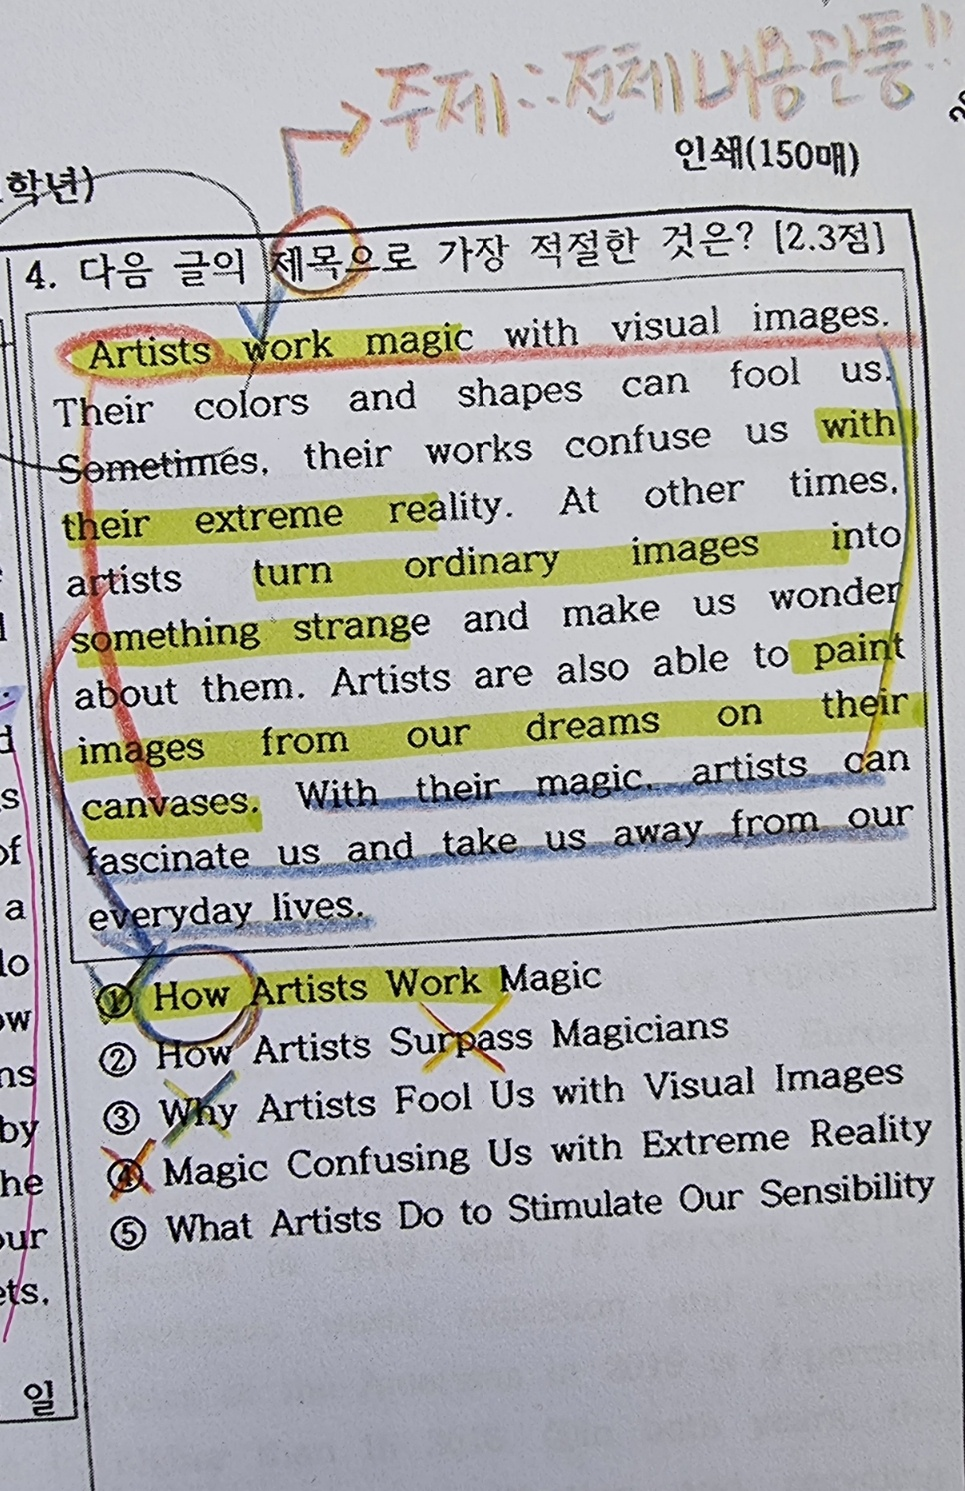 주제 : 전체 내용 관통!!
인쇄(150매)
학년)
4. 다음 글의 제목으로 가장 적절한 것은? [2.3점]
Artists work magic with visual images.
Their colors and shapes can fool us.
Sometimes, their works confuse us with
their extreme reality. At other times,
artists turn ordinary images into
something strange and make us wonder
about them. Artists are also able to paint
images from our dreams on their
canvases. With their magic, artists can
fascinate us and take us away from our
everyday lives.
① How Artists Work Magic
② How Artists Surpass Magicians
③ Why Artists Fool Us with Visual Images
④ Magic Confusing Us with Extreme Reality
⑤ What Artists Do to Stimulate Our Sensibility
d
s
of
a
lo
ow
ns
by
he
our
ets.
일